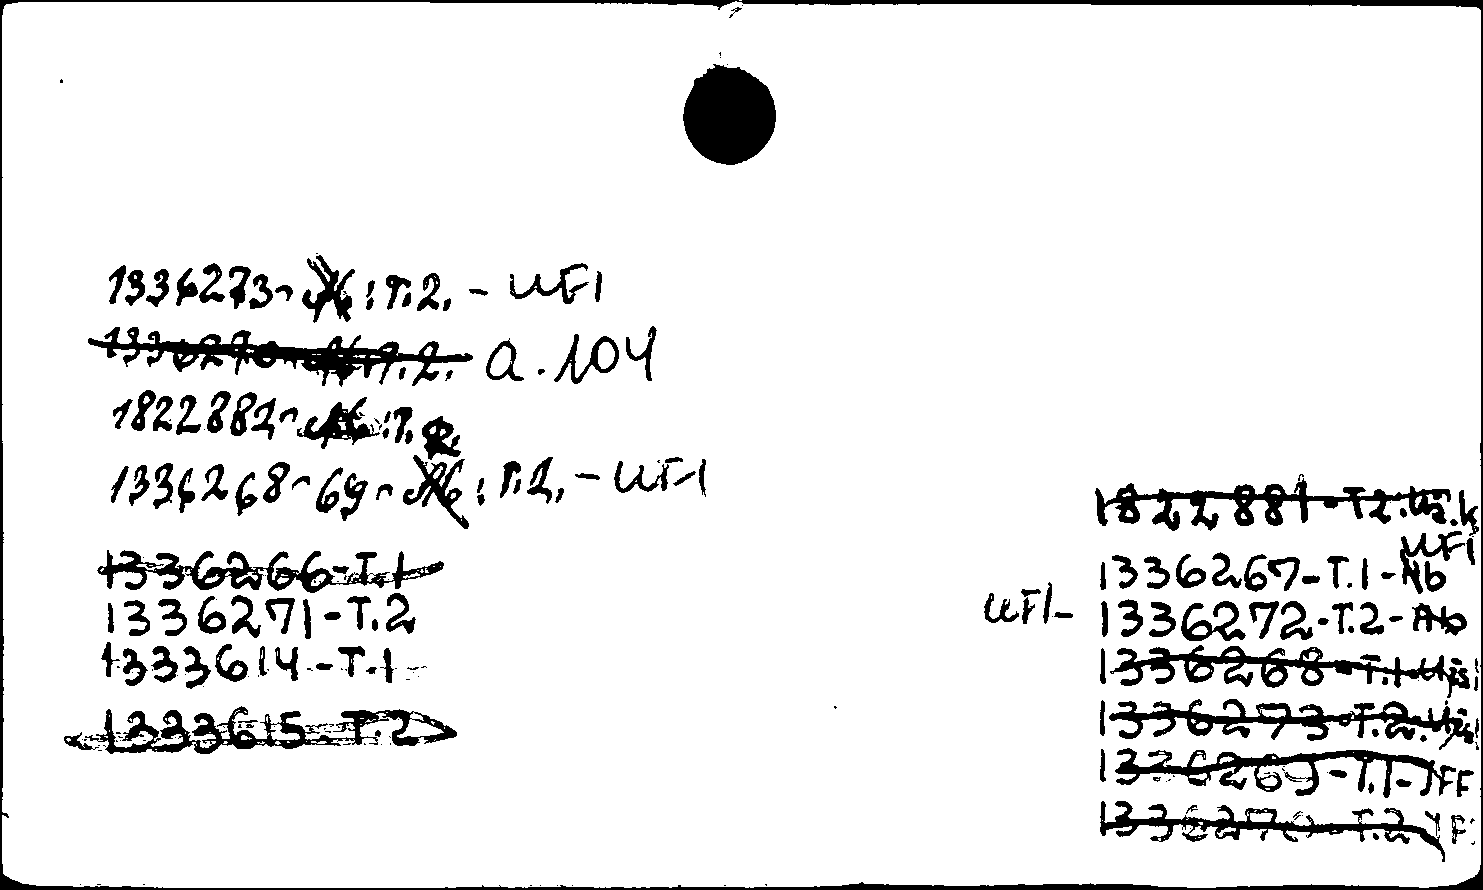 1336273- :T.2. - UFI
1336270- T.2. a.104
1822882- :T.
1336268-69- :T.2. - UFI
1336266-T.1
1336271-T.2
1333614-T.1
1333615-T.2
1822881-T2.
UFI
1336267-T.1-Ab
UFI- 1336272-T.2-Ab
1336268-T.1-
1336273-T.2.
1336269-T.1-
1336270-T.2